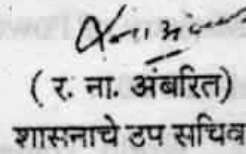 ( र. ना. अंबरित)
शासनाचे उप सचिव